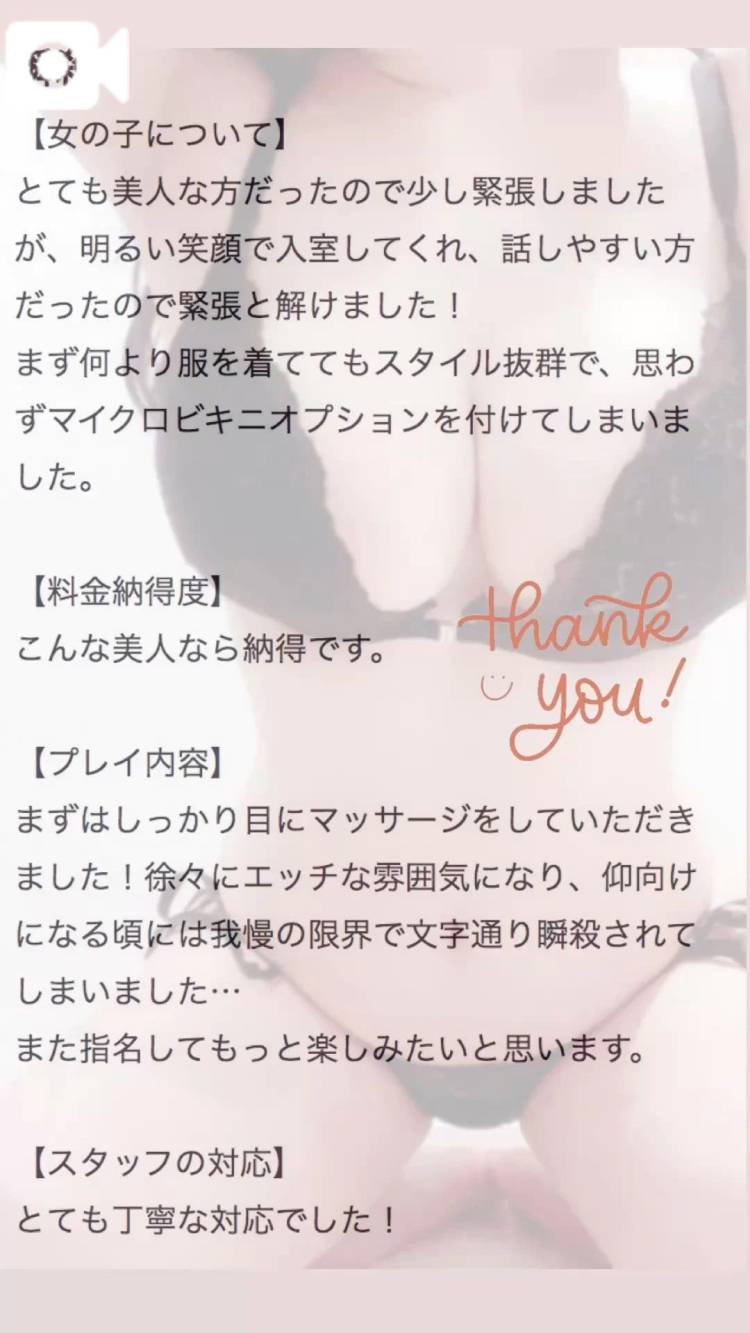 【女の子について】
とても美人な方だったので少し緊張しました
が、明るい笑顔で入室してくれ、話しやすい方
だったので緊張と解けました！
まず何より服を着ててもスタイル抜群で、思わ
ずマイクロビキニオプションを付けてしまいま
した。
【料金納得度】
こんな美人なら納得です。
thank
you!
【プレイ内容】
まずはしっかり目にマッサージをしていただき
ました！徐々にエッチな雰囲気になり、仰向け
になる頃には我慢の限界で文字通り瞬殺されて
しまいました…
また指名してもっと楽しみたいと思います。
【スタッフの対応】
とても丁寧な対応でした！